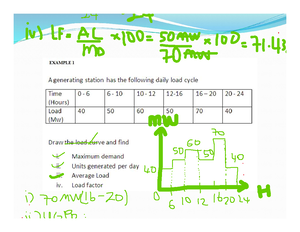 iv) LF = AL/MD × 100 = 50MW/70MW × 100 = 71.43
EXAMPLE 1
A generating station has the following daily load cycle
Time (Hours) 0 - 6 6 - 10 10 - 12 12-16 16 – 20 20 - 24
Load (Mw) 40 50 60 50 70 40
Draw the load curve and find
i. Maximum demand
ii. Units generated per day
iii. Average Load
iv. Load factor
MW
40 50 60 50 70 40
0 6 10 12 16 20 24 H
i) 70MW (16-20)